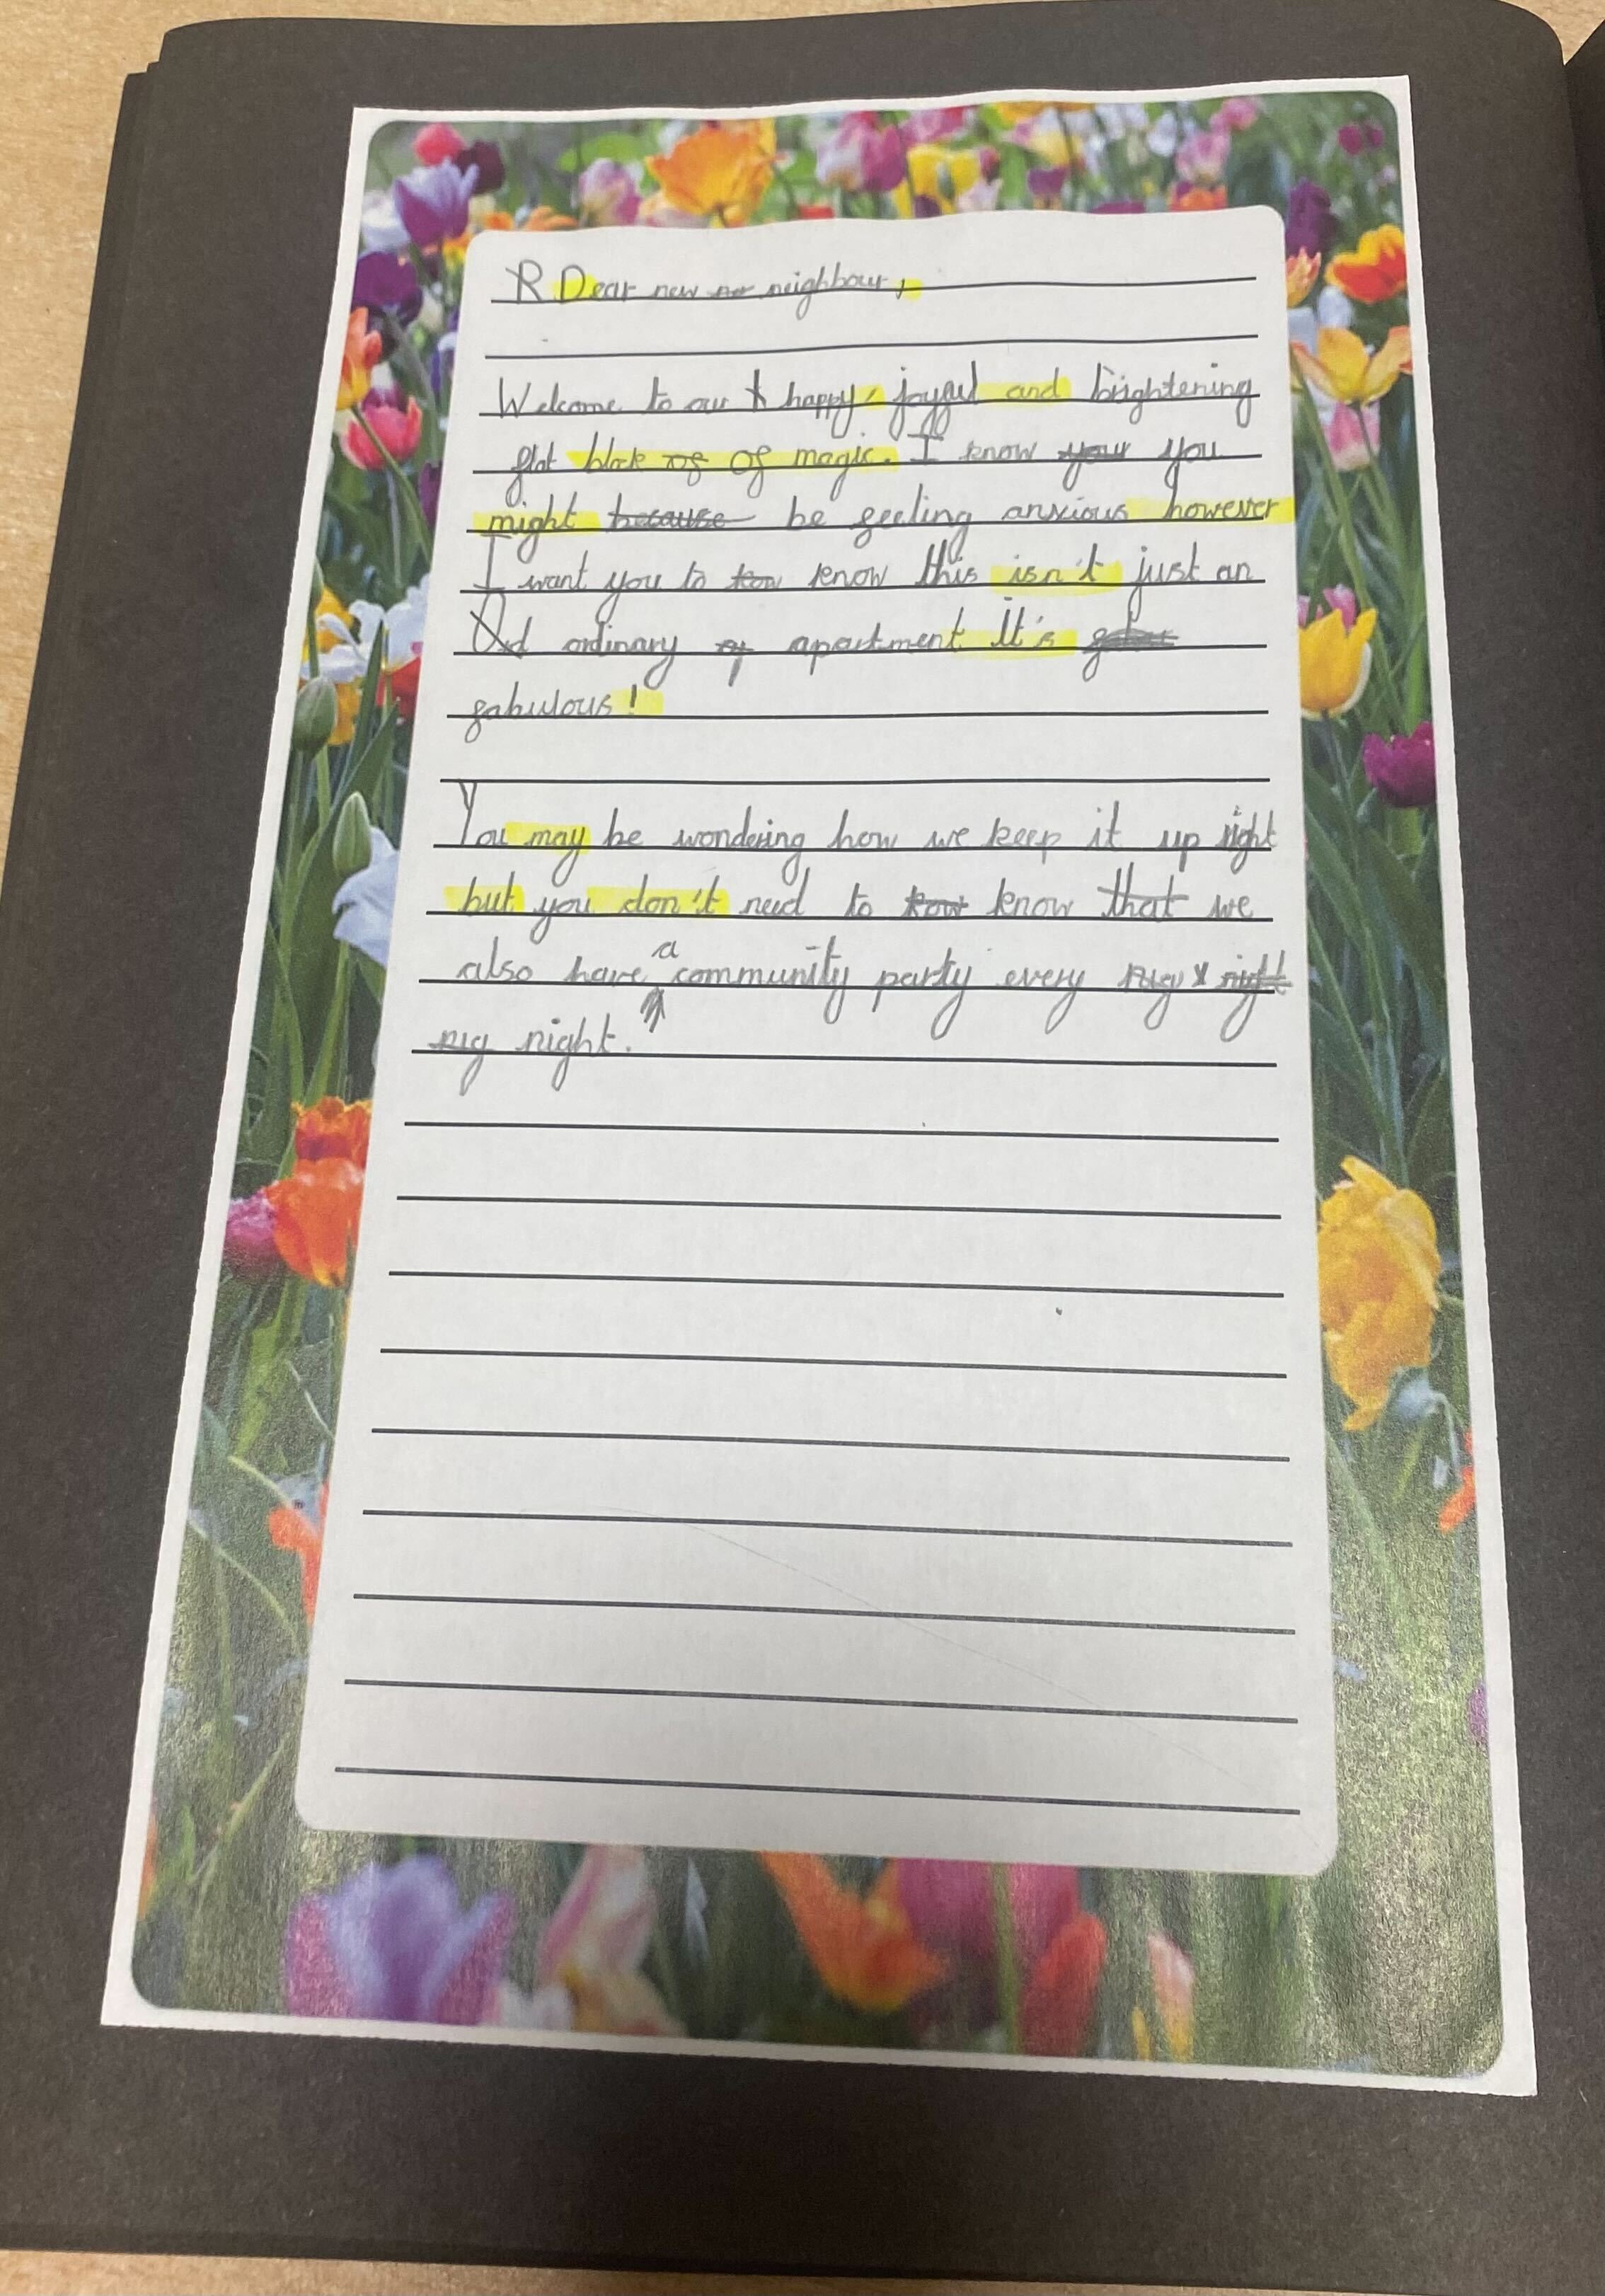 Dear new neighbour,
Welcome to our happy, joyful and brightening
flat block of magic. I know you
might be feeling anxious however
I want you to know this isn't just an
ordinary apartment It's
fabulous!
You may be wondering how we keep it up right
but you don't need to know that we
also have a community party every
night.